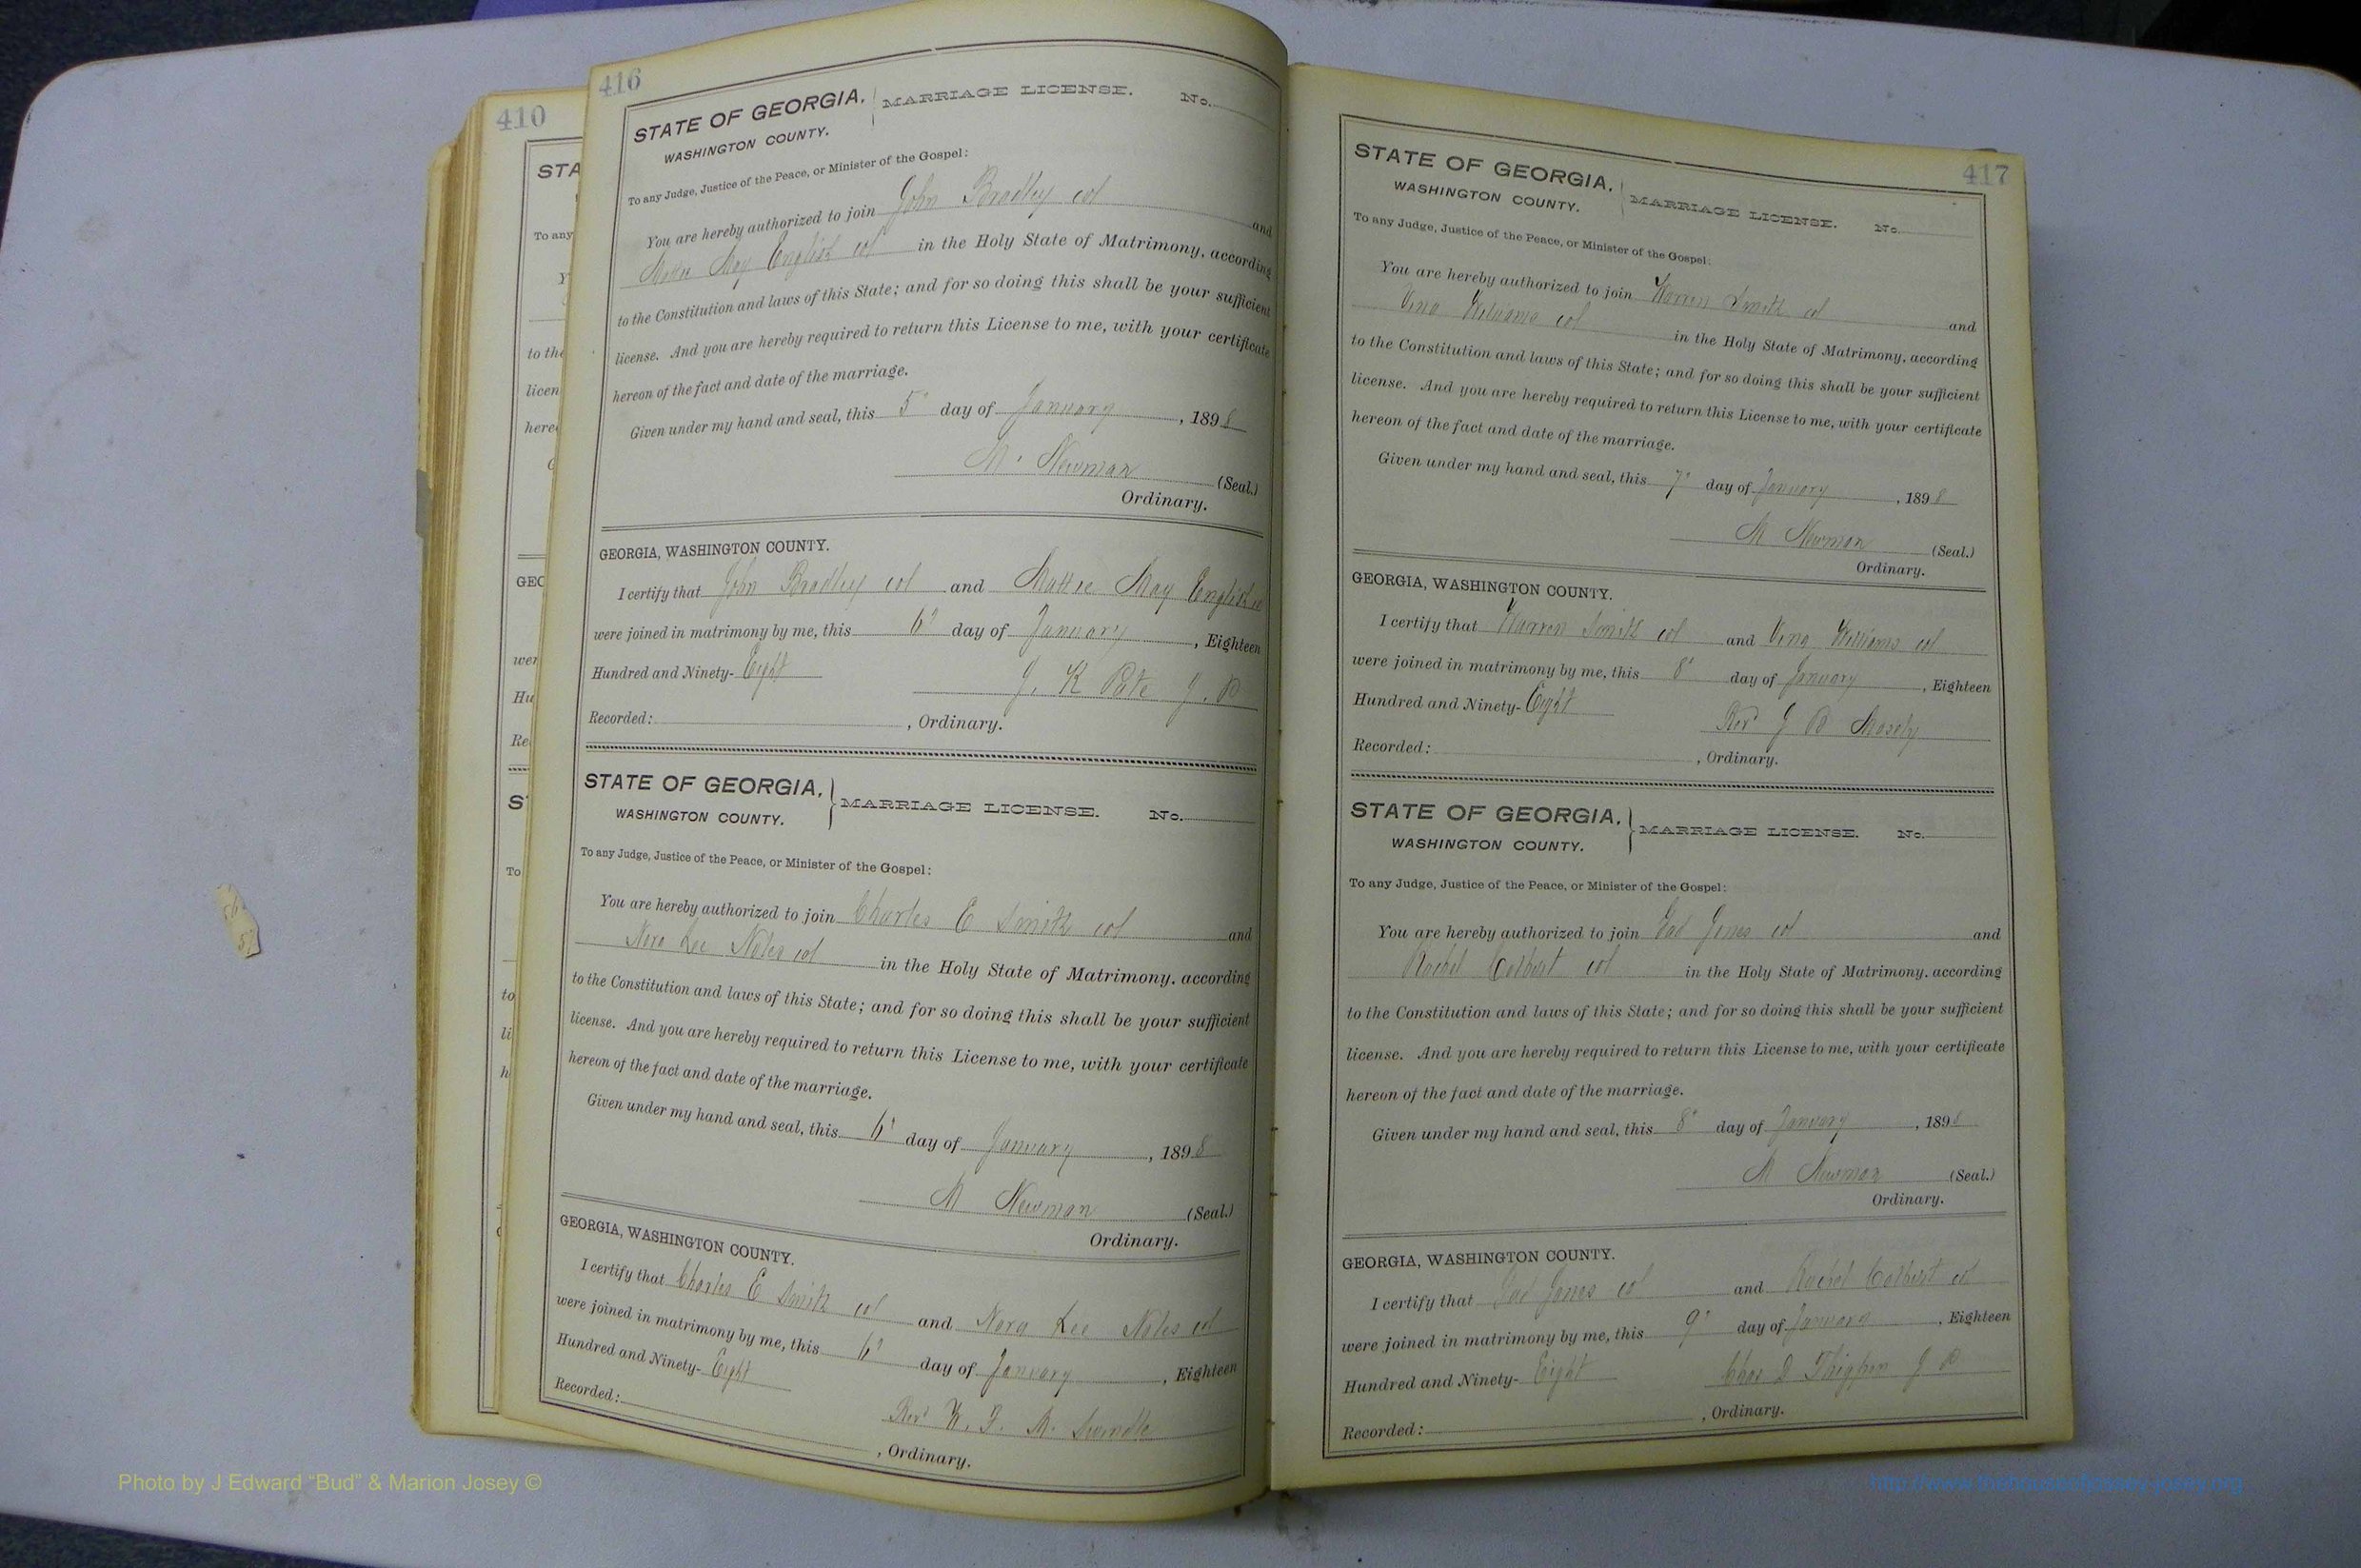 410
STA
To any
Y
to the
licen
here
G
GEO
wer
Hu
Re
S
To
to
li
h
416
STATE OF GEORGIA, MARRIAGE LICENSE. No.
WASHINGTON COUNTY.
To any Judge, Justice of the Peace, or Minister of the Gospel:
You are hereby authorized to join John Bradley col and
Mattie May English col in the Holy State of Matrimony, according
to the Constitution and laws of this State; and for so doing this shall be your sufficient
license. And you are hereby required to return this License to me, with your certificate
hereon of the fact and date of the marriage.
Given under my hand and seal, this 5" day of January, 1898
M. Newman (Seal.)
Ordinary.
GEORGIA, WASHINGTON COUNTY.
I certify that John Bradley col and Mattie May English col
were joined in matrimony by me, this 6" day of January, Eighteen
Hundred and Ninety-Eight J. K Pate J. P
Recorded: , Ordinary.
STATE OF GEORGIA, MARRIAGE LICENSE. No.
WASHINGTON COUNTY.
To any Judge, Justice of the Peace, or Minister of the Gospel:
You are hereby authorized to join Charles E Smith col and
Nora Lee Noles col in the Holy State of Matrimony. according
to the Constitution and laws of this State; and for so doing this shall be your sufficient
license. And you are hereby required to return this License to me, with your certificate
hereon of the fact and date of the marriage.
Given under my hand and seal, this 6" day of January, 1898
M Newman (Seal.)
Ordinary.
GEORGIA, WASHINGTON COUNTY.
I certify that Charles E Smith col and Nora Lee Noles col
were joined in matrimony by me, this 6" day of January, Eighteen
Hundred and Ninety-Eight
Rev W. F. M.
Recorded: , Ordinary.
417
STATE OF GEORGIA, MARRIAGE LICENSE. No.
WASHINGTON COUNTY.
To any Judge, Justice of the Peace, or Minister of the Gospel:
You are hereby authorized to join Warren Smith col and
Vina Williams col in the Holy State of Matrimony, according
to the Constitution and laws of this State; and for so doing this shall be your sufficient
license. And you are hereby required to return this License to me, with your certificate
hereon of the fact and date of the marriage.
Given under my hand and seal, this 7" day of January, 1898
M Newman (Seal.)
Ordinary.
GEORGIA, WASHINGTON COUNTY.
I certify that Warren Smith col and Vina Williams col
were joined in matrimony by me, this 8" day of January, Eighteen
Hundred and Ninety-Eight Rev J B Mosely
Recorded: , Ordinary.
STATE OF GEORGIA, MARRIAGE LICENSE. No.
WASHINGTON COUNTY.
To any Judge, Justice of the Peace, or Minister of the Gospel:
You are hereby authorized to join Gad Jones col and
Rachel Colbert col in the Holy State of Matrimony. according
to the Constitution and laws of this State; and for so doing this shall be your sufficient
license. And you are hereby required to return this License to me, with your certificate
hereon of the fact and date of the marriage.
Given under my hand and seal, this 8" day of January, 1898
M Newman (Seal.)
Ordinary.
GEORGIA, WASHINGTON COUNTY.
I certify that Gad Jones col and Rachel Colbert col
were joined in matrimony by me, this 9" day of January, Eighteen
Hundred and Ninety-Eight Chas D Thigpen J P
Recorded: , Ordinary.
Photo by J Edward “Bud” & Marion Josey ©